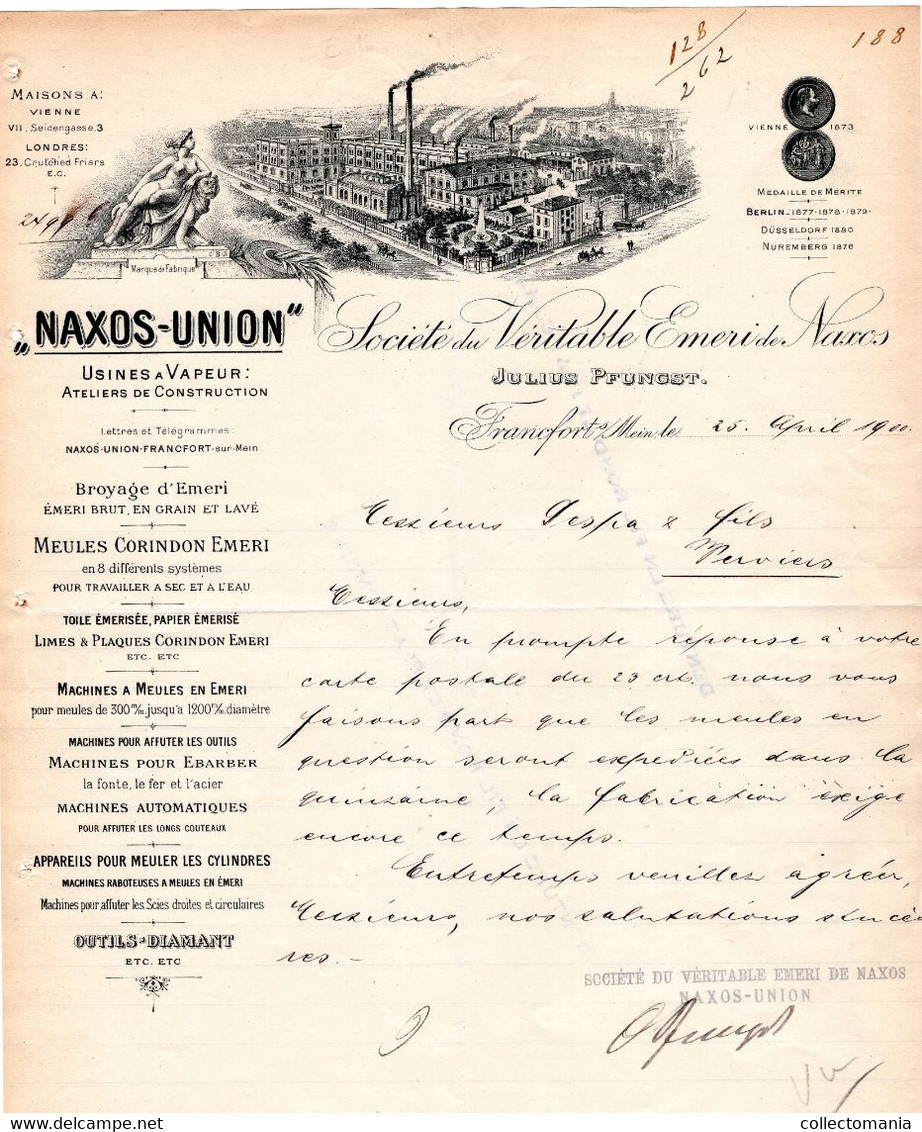 128
262
188
MAISONS A:
VIENNE
VII. Seidengasse.3
LONDRES:
23. Crutched Friars
E.C.
Marque de Fabrique
VIENNE 1873
MEDAILLE DE MÉRITE
BERLIN_1877-1878-1879-
DÜSSELDORF 1880
NUREMBERG 1876
„NAXOS-UNION“
Société du Véritable Emeri de Naxos
JULIUS PFUNGST.
USINES A VAPEUR:
ATELIERS DE CONSTRUCTION
Francfort s/Mein, le 25. April 1900.
Lettres et Télégrammes:
NAXOS-UNION-FRANCFORT-sur-Mein
Broyage d'Emeri
ÉMERI BRUT, EN GRAIN ET LAVÉ
MEULES CORINDON EMERI
en 8 différents systèmes
POUR TRAVAILLER A SEC ET A L'EAU
TOILE ÉMERISÉE, PAPIER ÉMERISÉ
LIMES & PLAQUES CORINDON EMERI
ETC. ETC
MACHINES A MEULES EN EMERI
pour meules de 300 m/m. jusqu'a 1200 m/m. diamètre
MACHINES POUR AFFUTER LES OUTILS
MACHINES POUR EBARBER
la fonte, le fer et l'acier
MACHINES AUTOMATIQUES
POUR AFFUTER LES LONGS COUTEAUX
APPAREILS POUR MEULER LES CYLINDRES
MACHINES RABOTEUSES A MEULES EN ÉMERI
Machines pour affuter les Scies droites et circulaires
OUTILS-DIAMANT
ETC. ETC
Messieurs Pespa & fils
Verviers
Messieurs,
En prompte réponse à votre
carte postale du 23 crt. nous vous
faisons part que les meules en
question seront expediées dans la
quinzaine, la fabrication exige
encore ce temps.
Entretemps veuillez agréer,
Messieurs, nos salutations sincè
res.-
SOCIÉTÉ DU VÉRITABLE EMERI DE NAXOS
NAXOS-UNION
collectomania